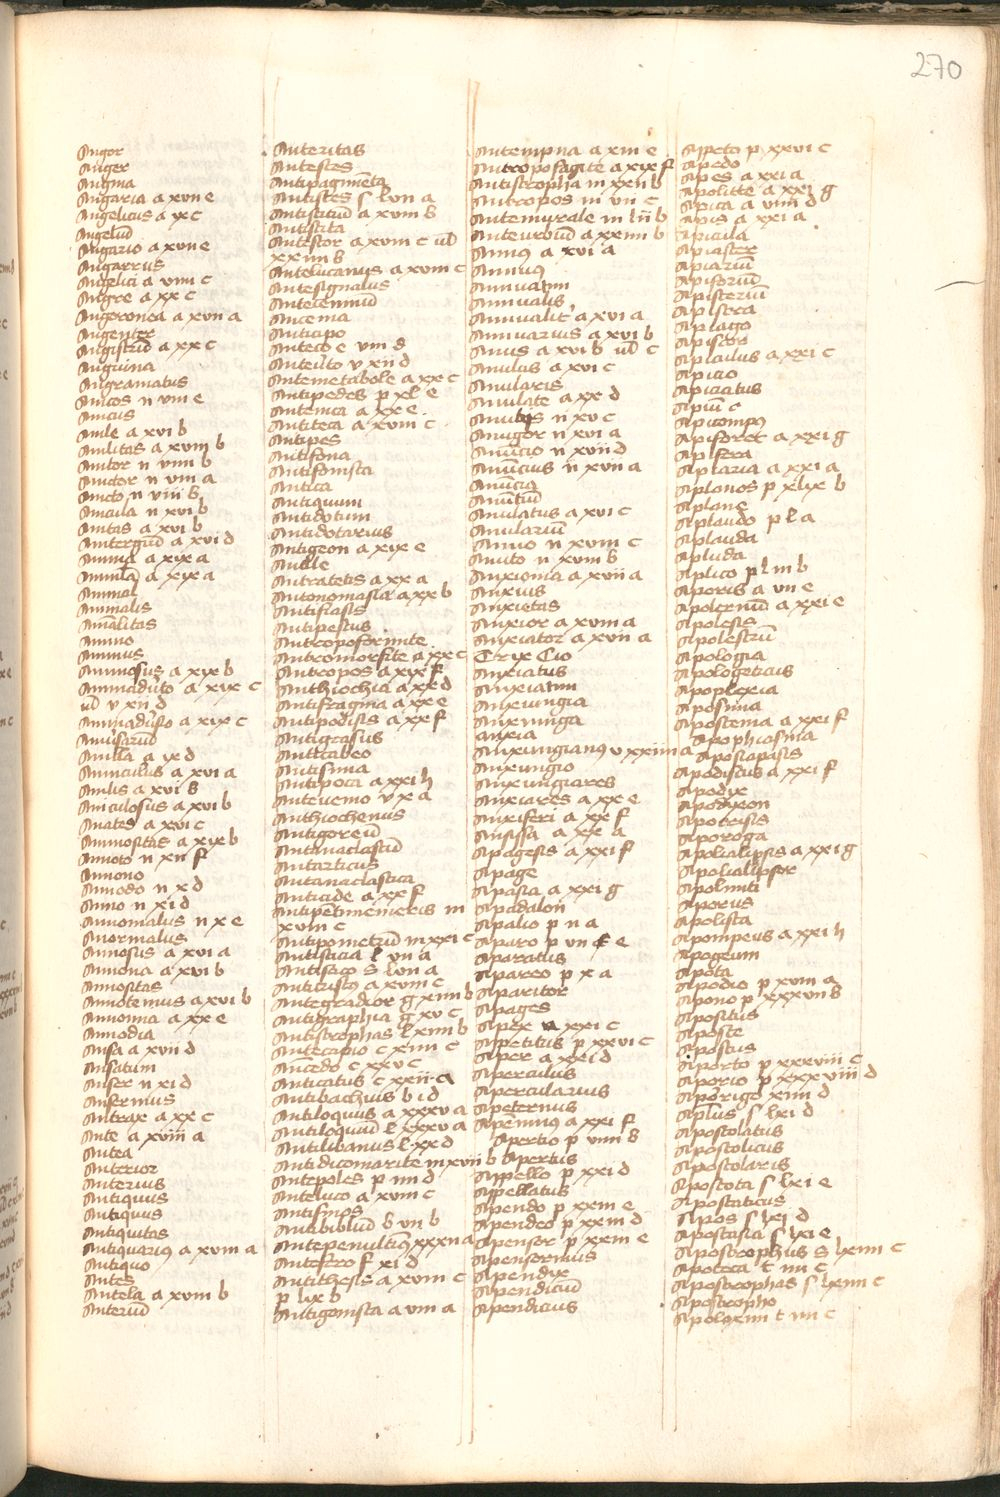 270
Angor
Anger
Angina
Angaria a xvii e
Angelicus a ix c
Angelus
Angario a xvii e
Angarius
Angelici a viii c
Angere a xx c
Angoronea a xvii a
Angenter
a xx c
Anguina
Angramatus
Anicos n viii e
Anicus
Anile a xvi b
Anilitas a xviii b
Anitor n viiii b
Anictor n viii a
Anicto n viii b
Anicula n xvi b
Anitas a xvi b
Anitergiū a xvi d
Anima a xix a
Animula a xix a
Animal
Animalis
Animalitas
Animo
Animus
Animosus a xix b
a xix c
ul v xii d
a xix c
Anisarium
a ix d
Aninculus a xvi a
Anilis a xvi b
Aniculosus a xvi b
Anates a xvi c
Animositas a xix b
Annoto n xii f
Annono
Annodo n x d
Anno n xi d
Annomalus n x e
Anormalus
Annosus a xvi a
Annona a xvi b
Annositas
Annotemus a xvi b
Annonna a xx e
Annodia
Ansa a xvii d
Ansatum
Anser n xi d
Anserinus
Antrax a xx c
Ante a xviii a
Antea
Anterior
Anterius
Antiquus
Antiquus
Antiquitas
Antiquarius a xviii a
Antiquo
Antes
Antela a xviii b
Anteriū
Anteritas
Antestes
Antipagmenta
Antistes s lvii a
Antistitiū a xviii b
Antistita
Antestor a xviii c ul
xxiiii b
Antelucanus a xviii c
Antesignatus
Antecenniū
Ancenia
Anticipo
Anteeo e viii d
Anteuito v xii d
Antemetabole a xx c
Antipedes p xl e
Antenica a xx e
Antiteca a xviii c
Antipes
Antifona
Antifonista
Antica
Antiquum
Antidotum
Antidotarius
Antigeon a xix e
Antratetis a xx a
Antonomasia a xx b
Antifrasis
Antipestus
Antropoformite
Antromorfite a xx c
Antropos a xix f
Anthiochia a xx d
Antifragma a xx e
Antipodisis a xx f
Antigrasus
Antisima
Antipoca a xxi h
Antevenio v x a
Anthiochenus
Antigoreū
Antanaclastū
Antarticus
Antanaclastica
Anticide a xx f
Antipentimemeris m
xviii c
Antipometriū m xxi c
Antisticia l vii a
Antisaco s lvii a
Antitistus a xviii c
Antegradior g xiiii b
Antigraphia g xv c
Antistrophas l xiiii b
Antecapio c xiiii c
Ancedo c xxv c
Anticatus c xxii a
Antibachius b i d
Antiloquus a xxxv a
Antiloquiū l xxxv a
Antilibanus l xx d
Antidicomarite m xvii b
Antepoles p iiii d
Anteluco a xviii c
Antifinos
Antibibliū b vii b
Antepenultimus xxxii a
Antefero f xi d
Antithesis a xviii c
p lix b
Antigonista a viii a
Antempna a xiii e
Antropofagite a xix f
Antistropha m xxii b
Antropos m vii c
Antemurale m liii b
Anteurbiū a xxiiii b
Annus a xvi a
Annuus
Annuatim
Annualis
Annualit a xvi a
Annuarius a xvi b
Anus a xvi b ul c
Anulus a xvi c
Anularis
Anulate a xx d
n xv c
Anugor n xvi a
Anuncio n xvii d
Anuncius n xvii a
Anuncia
Anunciū
Anulatus a xvi c
Anulariū
Annuo n xviii c
Annuto n xviii b
Anxionia a xvii a
Anxius
Anxietas
Anxior a xvii a
Anxiator a xvii a
Trix Cio
Anxiatus
Anxiatim
Anxungia
Anxiunga
anxia
Anxungianus v xxiiii a
Anxungio
Anxungiares
Anxiares a xx e
Anxiferi a xx f
Ansissa a xx a
Apagesis a xxi f
Apage
Apasia a xxi g
Apadalon
Apalio p ii a
Aparo p vii e
Aparatus
Apareo p x a
Aparitor
Apages
Apex a xxi c
Apetitus p xxvi c
Aper a xxi d
Aperculus
Apercularius
Apeternus
Apenninus a xxi f
Apertio p viii b
Apertus
Appello p xxi d
Appellatus
Apendo p xxiii e
Apendeo p xxiii d
Apensor p xxiii e
Apensorius
Apendix
Apendiciū
Apendicius
Apeto p xxvi c
Apedo
Apes a xxi a
Apolitte a xxi g
Apica a viiii d
Apis a xxi a
Apicula
Apiaster
Apiariū
Apisoriū
Apisteriū
Aplstra
Aplago
Apistos
Aplaulus a xxi c
Apicio
Apiciatus
Apiū c
Apicompus
Apiforet a xxi g
Apifera
Aplaria a xxi a
Aplanos p xlix b
Aplane
Aplaudo p l a
Aplauda
Apluda
Aplico p l iii b
Aporis a vii e
Apoterniū a xxi e
Apolesis
Apolestriū
Apologia
Apologeticus
Apoplexia
Aposima
Apostema a xxi f
Apophiasma
Aposiapasis
Apodiscus a xxi f
Apodix
Apodixeon
Apotrisis
Aporoga
Apolialipsis a xxi g
Apolialipser
Apolniti
Aporus
Apolista
Apompeus a xxi h
Apogeum
Apota
Apodio p xviii a
Apono p xxxvii b
Apositus
Aposte
Apostus
Aporto p xxxviii c
Aporio p xxxviii d
Aporigo xiiii d
Aplus s lxi d
Apostolatus
Apostolicus
Apostolaris
Apostota s lxi e
Apostaticus
Apos s lxi d
Apostasia s lxi e
Apostrophus s lxiiii c
Apoteca t iiii c
Apostrophas s lxiiii c
Apostropho
t iiii c